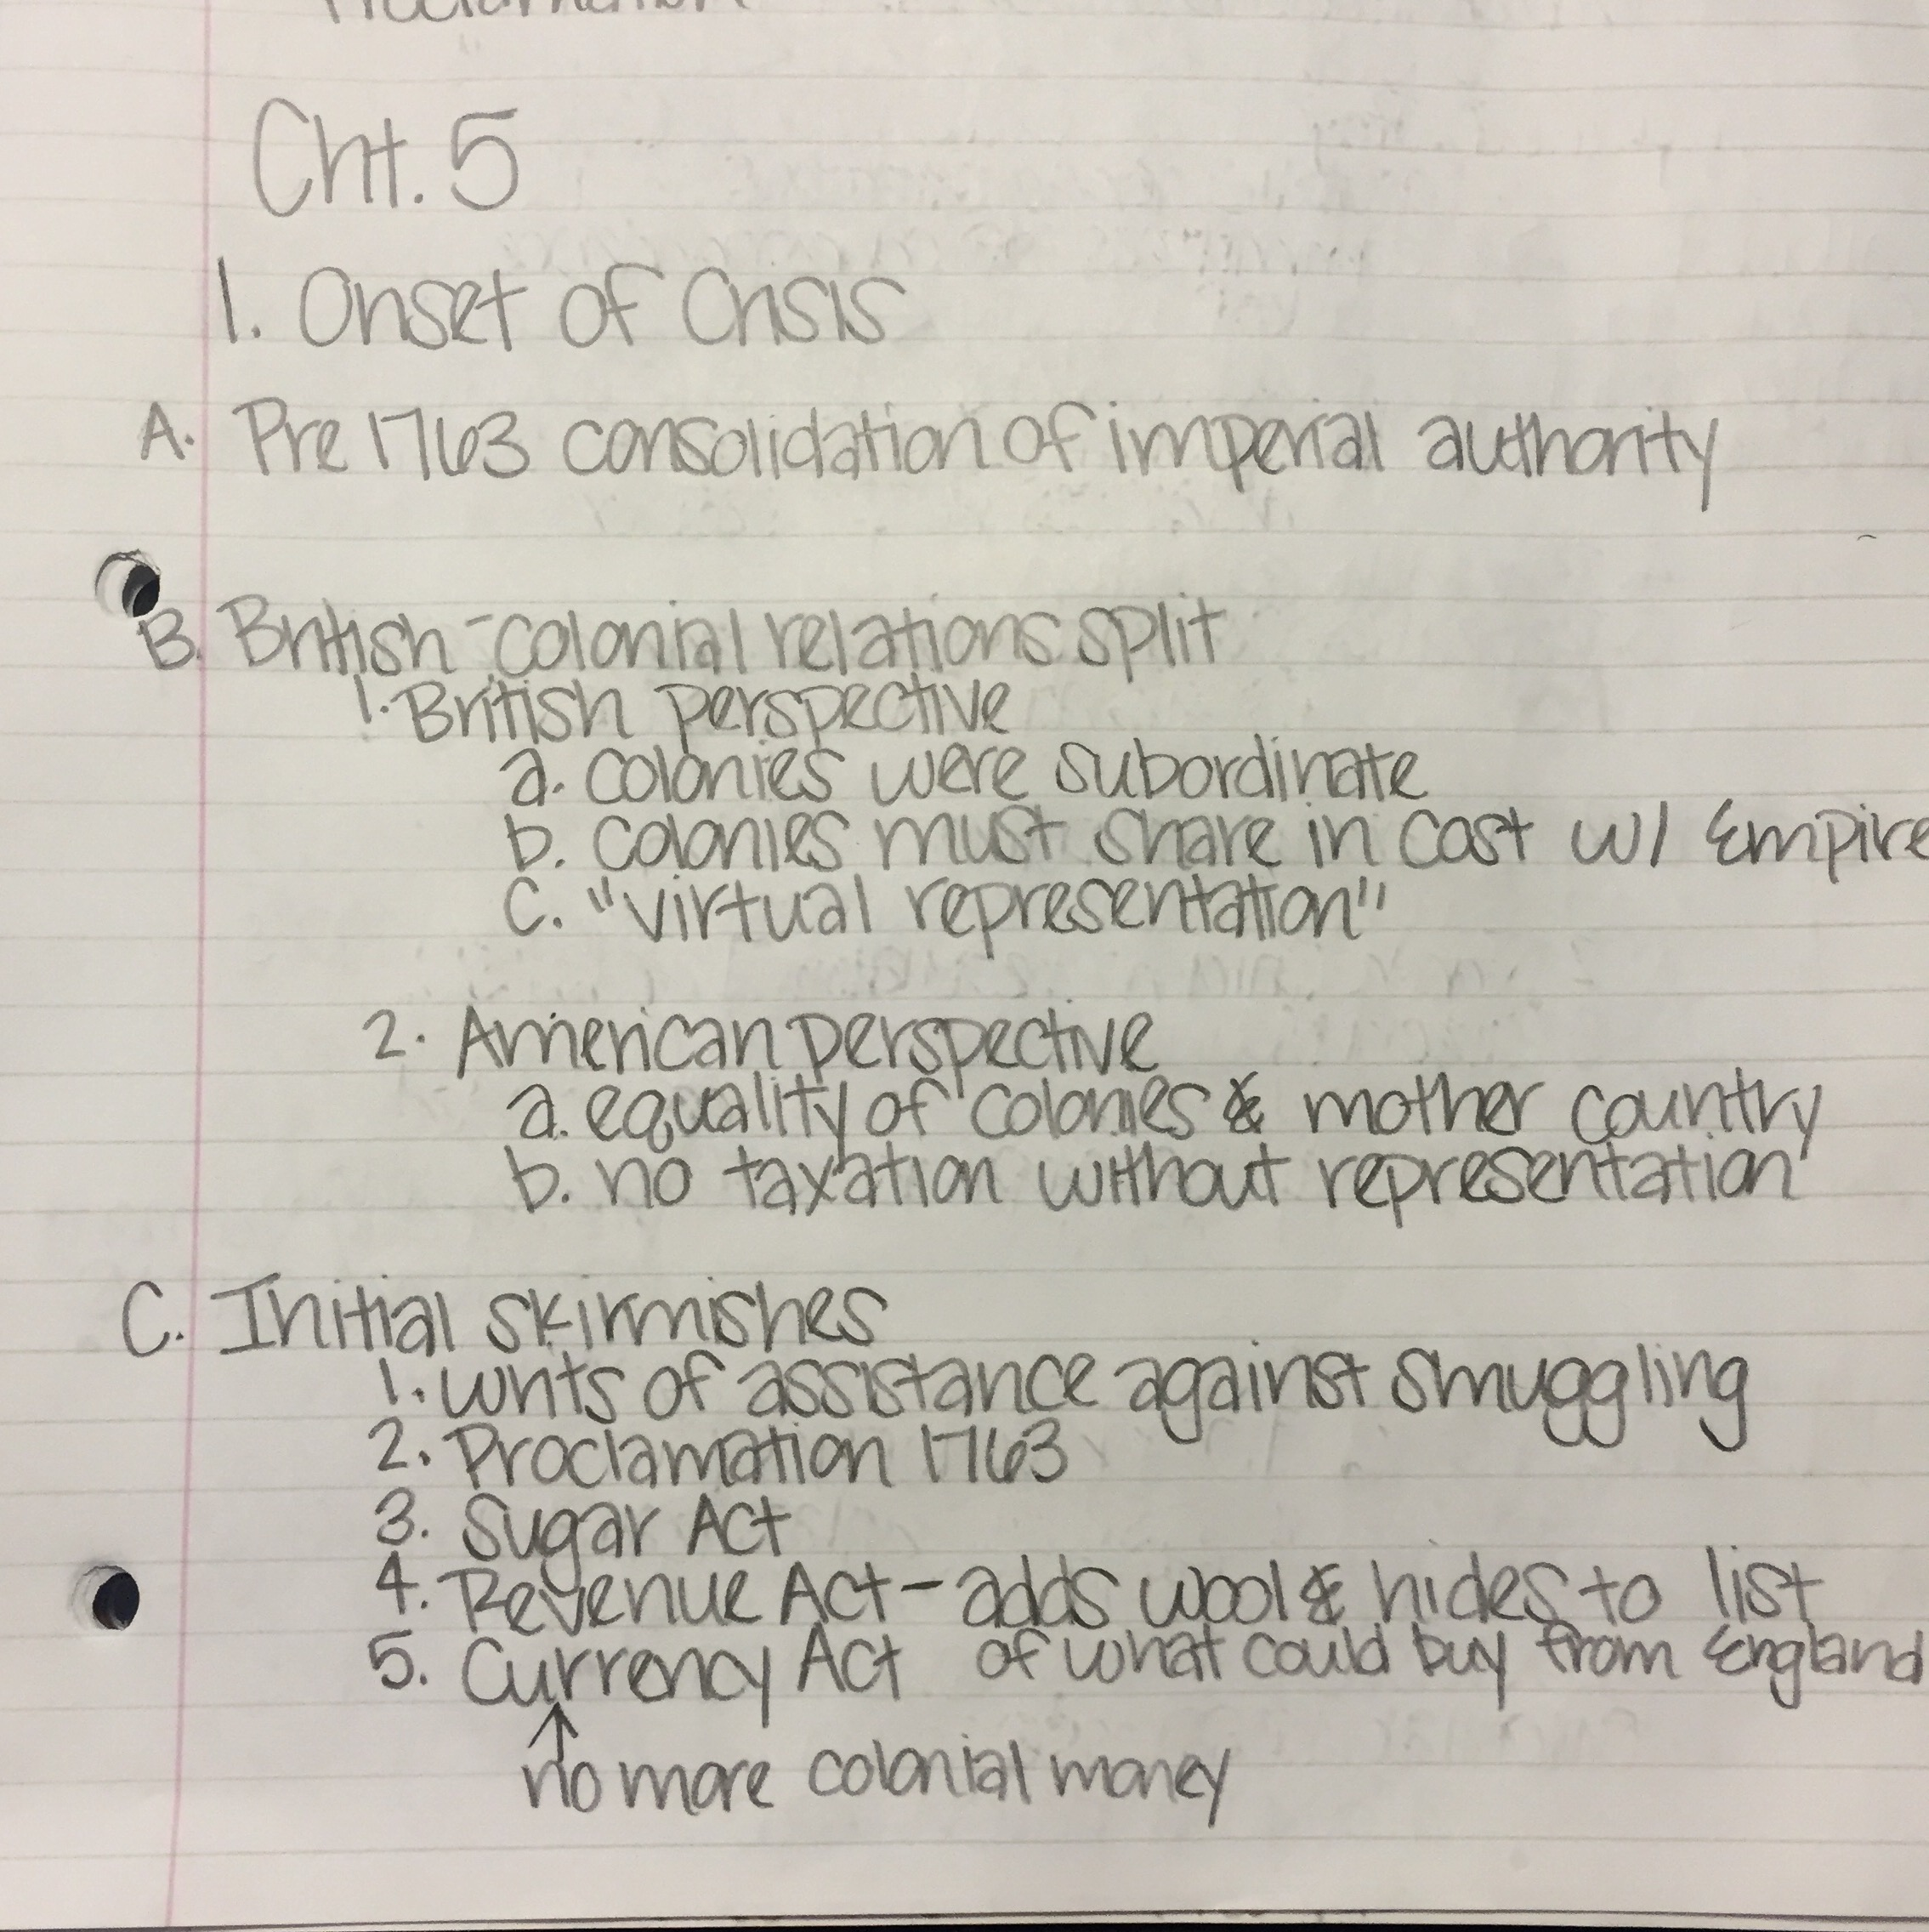 Proclamation
Cht. 5
1. Onset of Crisis
A. Pre 1763 consolidation of imperial authority
B. British-colonial relations split
1. British perspective
a. colonies were subordinate
b. colonies must share in cost w/ Empire
c. "virtual representation"
2. American perspective
a. equality of colonies & mother country
b. no taxation without representation
C. Initial skirmishes
1. writs of assistance against smuggling
2. Proclamation 1763
3. Sugar Act
4. Revenue Act - adds wool & hides to list
5. Currency Act of what could buy from England
↑
no more colonial money